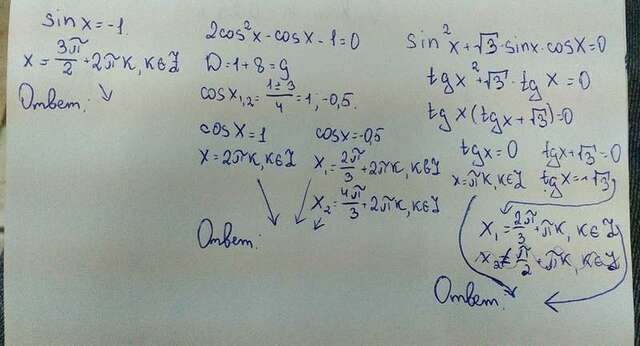 sin x = -1
x = 3π/2 + 2πk, k∈Z
Ответ:
2cos²x - cosx - 1 = 0
D = 1 + 8 = 9
cosx₁,₂ = 1±3/4 = 1, -0,5.
cosx = 1 cosx = -0,5
x = 2πk, k∈Z x₁ = 2π/3 + 2πk, k∈Z
x₂ = 4π/3 + 2πk, k∈Z
Ответ:
sin²x + √3·sinx·cosx = 0
tgx² + √3·tgx = 0
tgx(tgx + √3) = 0
tgx = 0 tgx + √3 = 0
x = πk, k∈Z tgx = -√3
x₁ = 2π/3 + πk, k∈Z
Ответ: